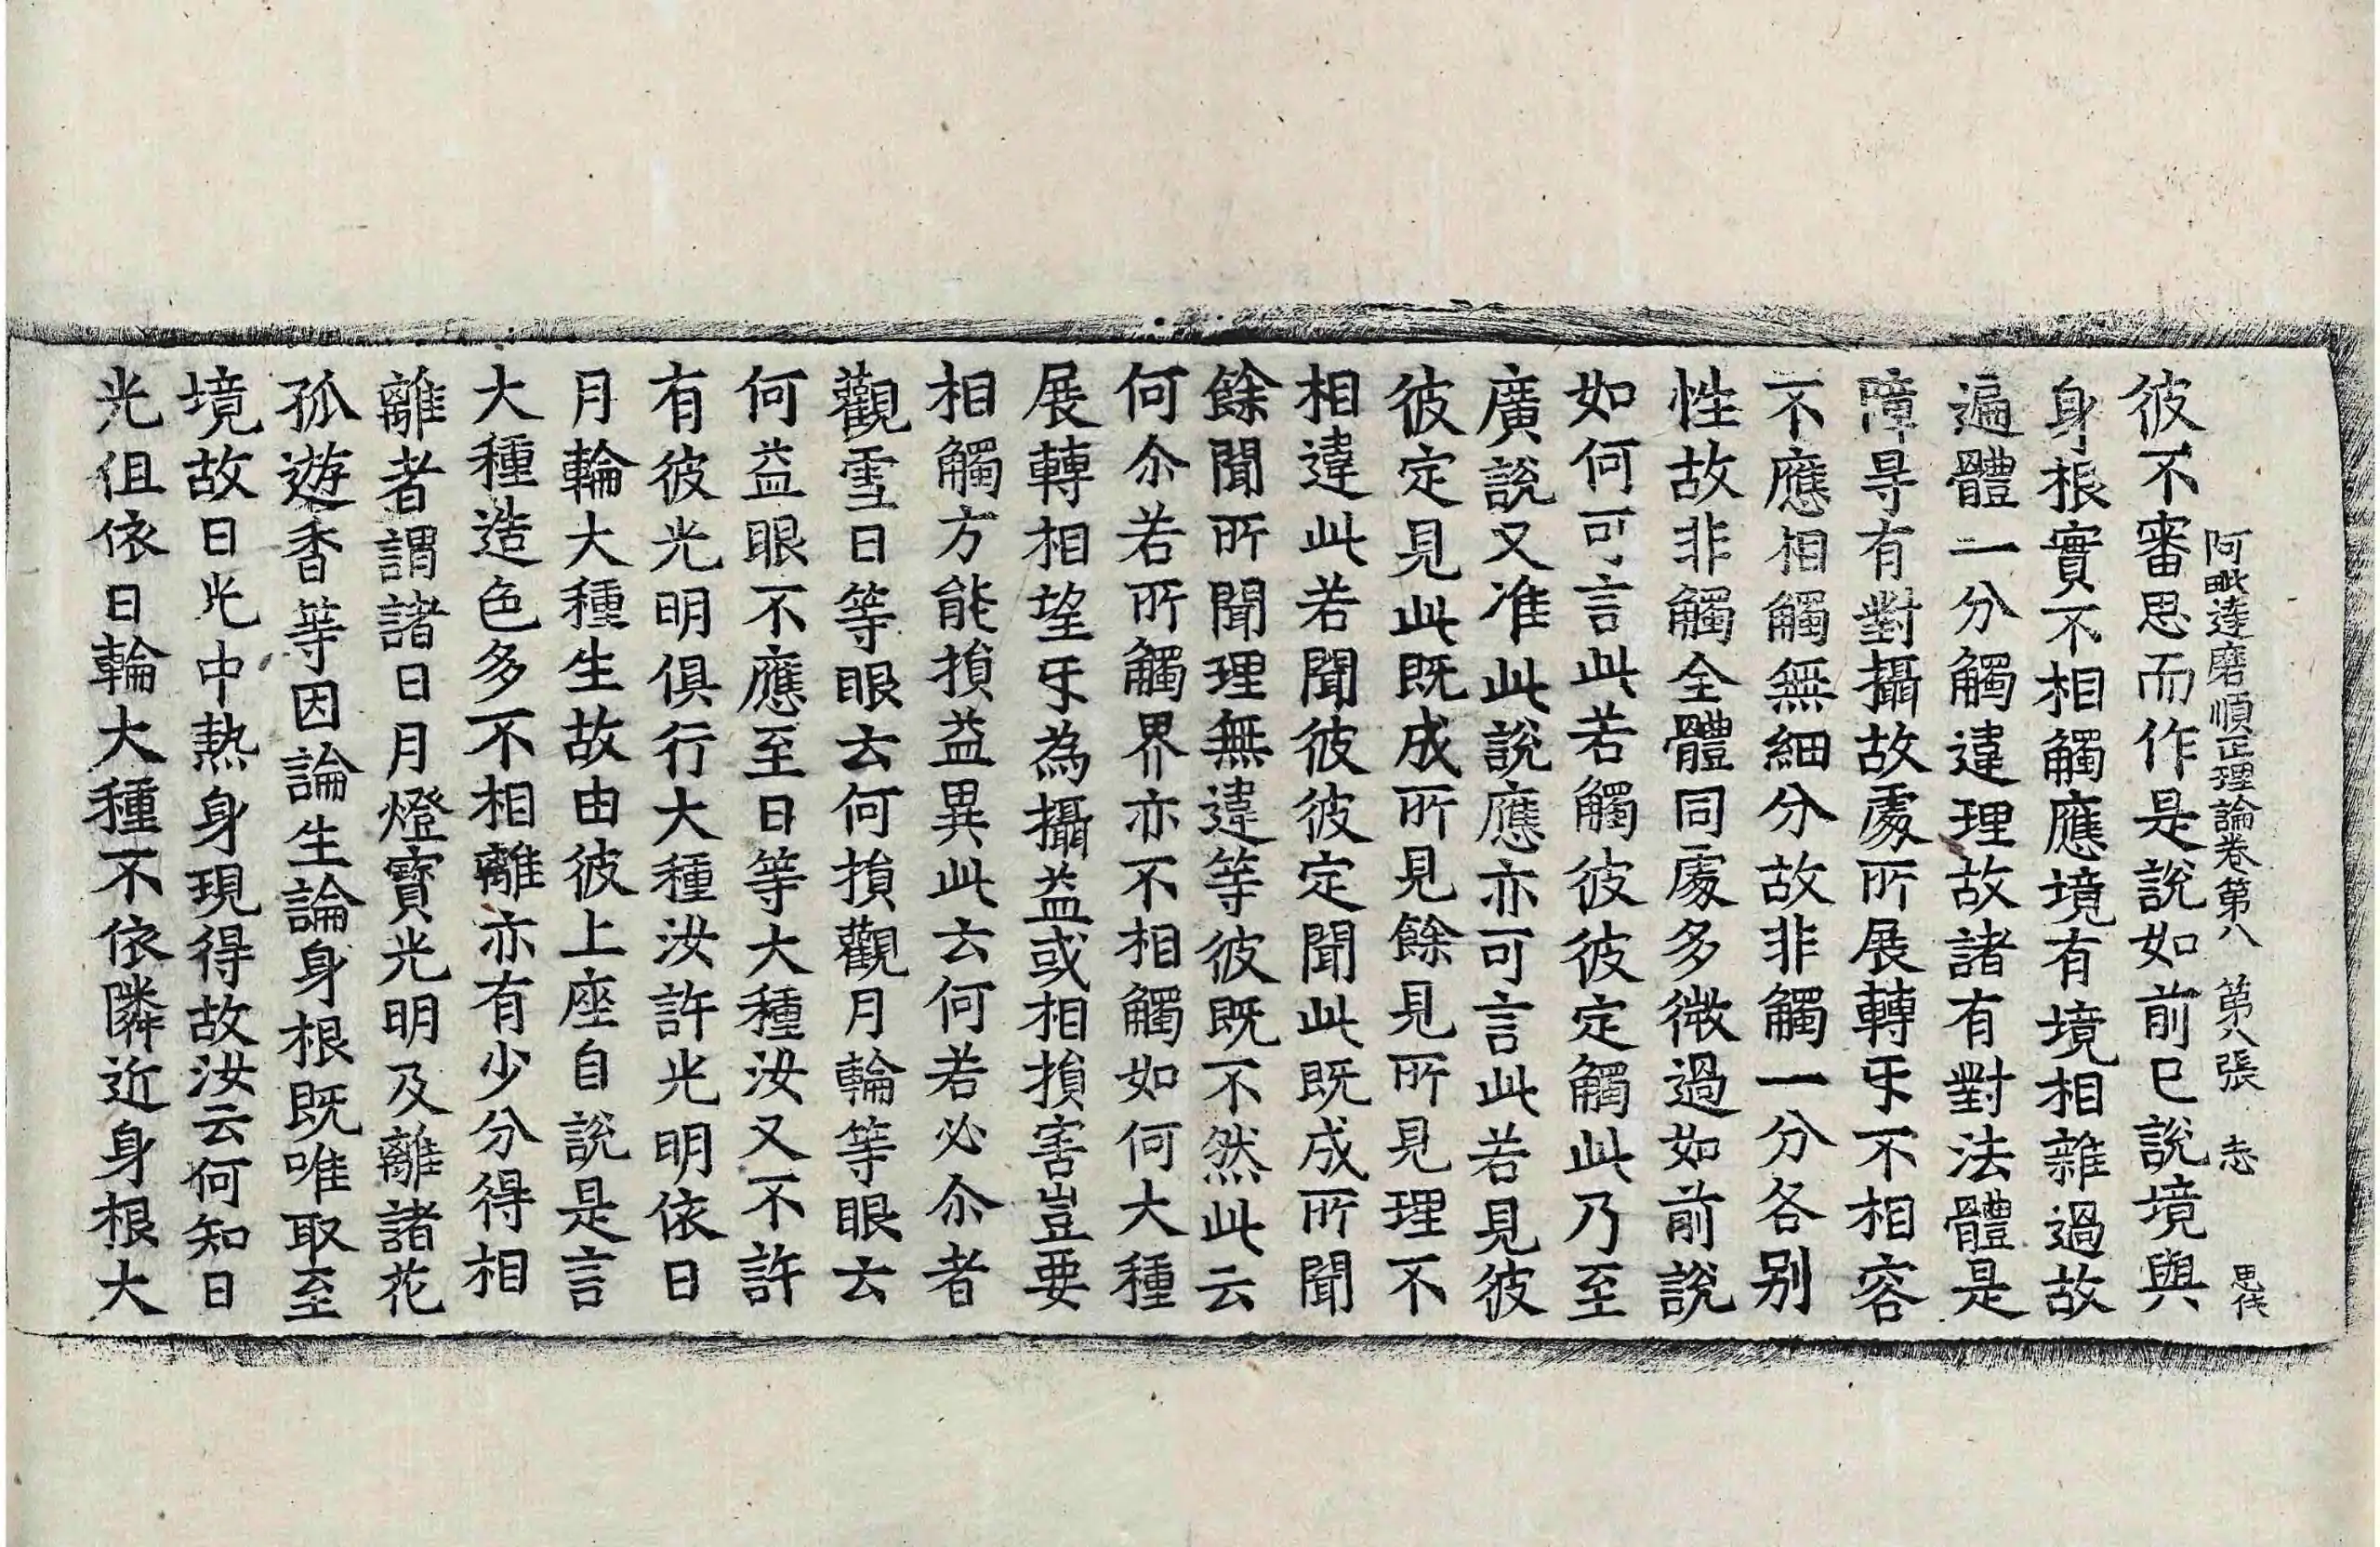 阿毗達磨順正理論卷第八　第八張　志　思伐
彼不審思而作是說如前已說境與
身根實不相觸應境有境相雜過故
遍體一分觸違理故諸有對法體是
障㝵有對攝故處所展轉㸦不相容
不應相觸無細分故非觸一分各别
性故非觸全體同處多微過如前說
如何可言此若觸彼彼定觸此乃至
廣說又准此說應亦可言此若見彼
彼定見此既成所見餘見所見理不
相違此若聞彼彼定聞此既成所聞
餘聞所聞理無違等彼既不然此云
何尒若所觸界亦不相觸如何大種
展轉相望㸦為攝益或相損害豈要
相觸方能損益異此云何若必尒者
觀雪日等眼云何損觀月輪等眼云
何益眼不應至日等大種汝又不許
有彼光明俱行大種汝許光明依日
月輪大種生故由彼上座自說是言
大種造色多不相離亦有少分得相
離者謂諸日月燈寶光明及離諸花
孤遊香等因論生論身根既唯取至
境故日光中熱身現得故汝云何知日
光但依日輪大種不依隣近身根大